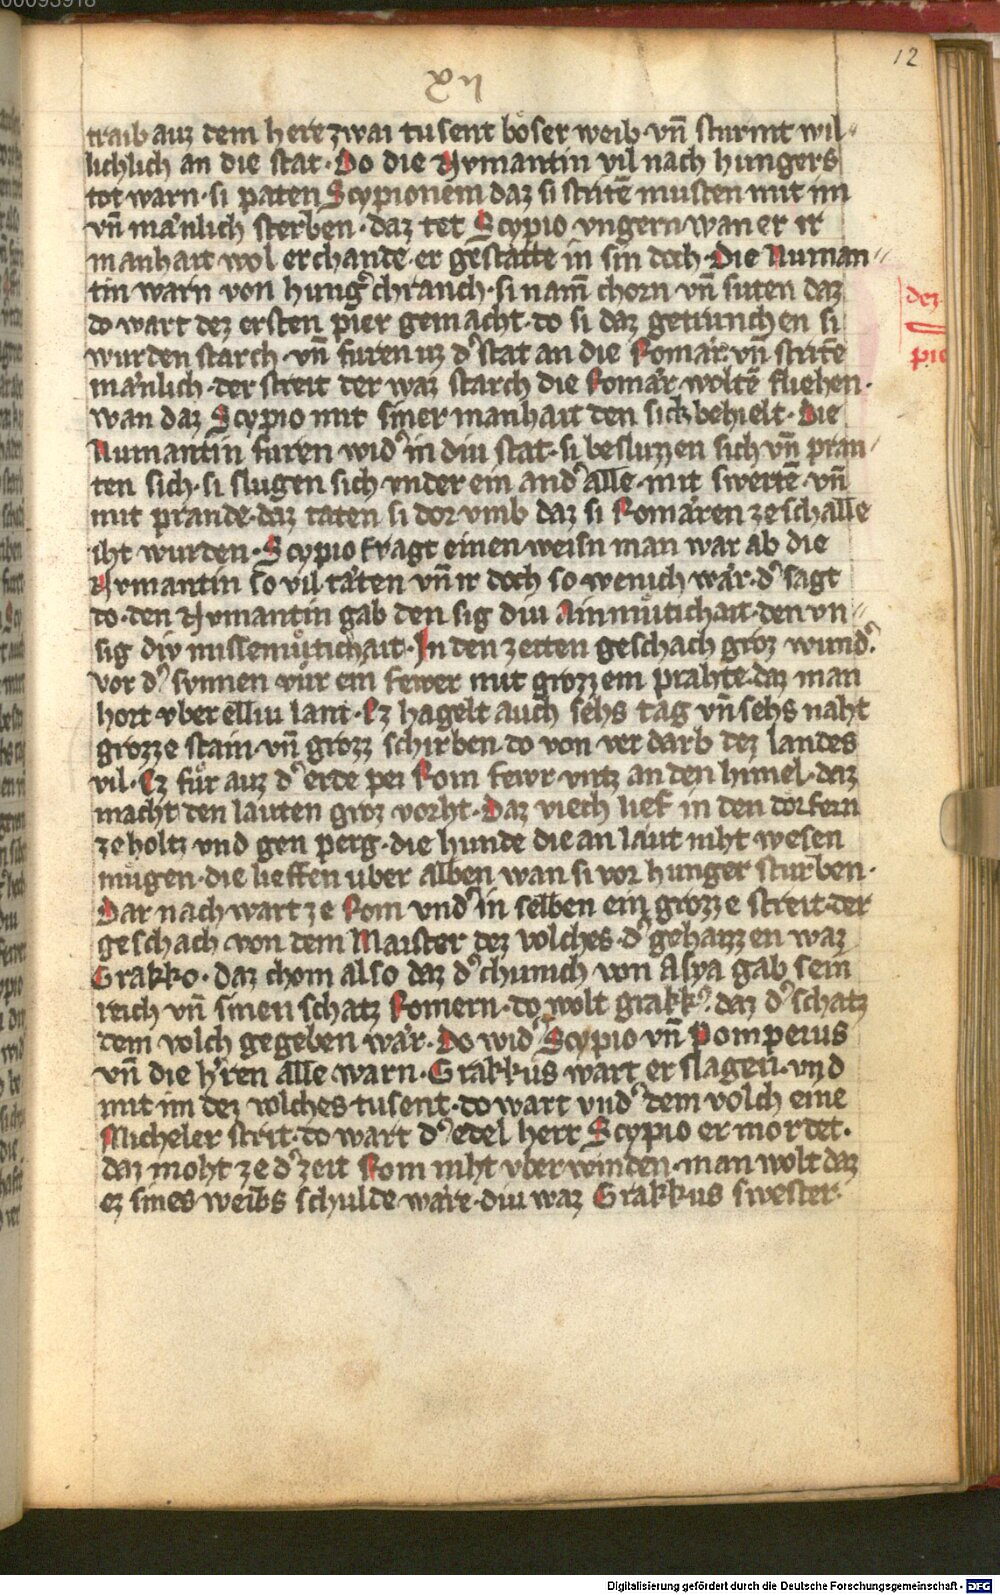 00093918
12
XII
traib auz dem here zwai tusent boͤser weib vn̄ sturmt wil⸗
lichlich an die stat · Do die Nvmantin vil nach hungers
tot warn · si paten Scypionem daz si stritē musten mit im
vn̄ maͤnlich sterben · daz tet Scypio vngern wan er ir
manhait wol erchande · er gestatte in sin doch · Die Numan⸗
tin warn von hung͛ chranch · si nam̄ chorn vn̄ suten daz
do wart dez ersten pier gemacht · do si daz getrunchen si
wurden starch vn̄ furen uz d͛ stat an die Romaͤr vn̄ stritē
maͤnlich · der streit der waz starch die Romaͤr woltē fliehen ·
wan daz Scypio mit siner manhait den sick behielt · Die
Numantin furen wid͛ in diu stat · si besluzzen sich vn̄ pran⸗
ten sich · si slugen sich vnder ein and͛ alle · mit swertē vn̄
mit prande · daz taten si dor vmb daz si Romaͤren ze schalle
iht wurden · Scypio fragt einen weisn man war ab die
Nvmantin so vil taͤten vn̄ ir doch so wenich waͤr · d͛ sagt
do · den Nvmantin gab den sig diu Ainmuͤtichait · den vn⸗
sig div missemuͤtichait · In den zeiten geschach groz wund͛ ·
vor d͛ svnnen vuͤr ein fewer mit grozzem prahte · daz man
hort vber elliu lant · Ez hagelt auch sehs tag vn̄ sehs naht
grozze stain vn̄ grozz schirben · do von verdarb dez landes
vil · Ez fuͤr auz d͛ erde pei Rom fewr vntz an den himel · daz
macht den lauten groz vorht · Daz viech lief in den doͤrfern
ze holtz vnd gen perg · die hunde die an laut niht wesen
muͤgen · die lieffen uber alben wan si vor hunger sturben ·
Dar nach wart ze Rom vnd͛ in selben ein grozze streit · der
geschach von dem Maister dez volches · d͛ gehaizzen waz
Grakko · daz chom also daz d͛ chunich von Asya gab sein
reich vn̄ sinen schatz Romern · do wolt grakk⁹ daz d͛ schatz
dem volch gegeben waͤr · Do wid͛ Scypio vn̄ Pompeius
vn̄ die h͛ren alle warn · Grakkus wart erslagen · vnd
mit im dez volches tusent · do wart vnd͛ dem volch eine
Micheler strit · do wart d͛ edel herr Scypio ermordet ·
daz moht ze d͛ zeit Rom niht vberwinden · man wolt daz
ez sines weibs schulde waͤre · diu waz Grakkus swester ·
dez
pie
Digitalisierung gefördert durch die Deutsche Forschungsgemeinschaft - DFG